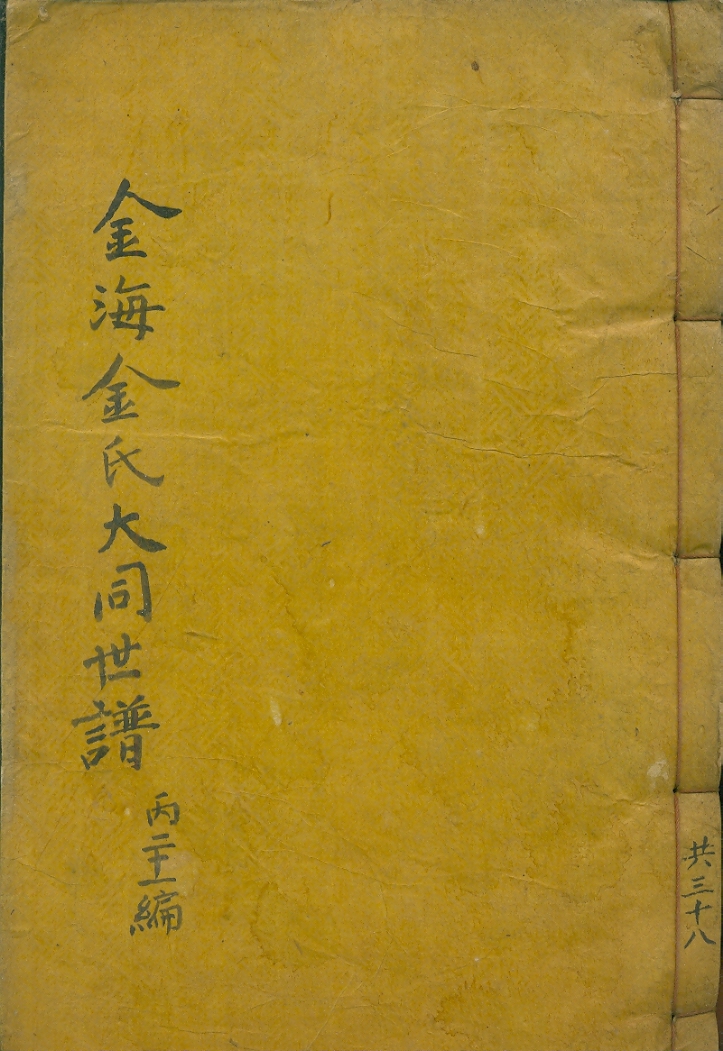 金海金氏大同世譜
丙二十一編
共三十八